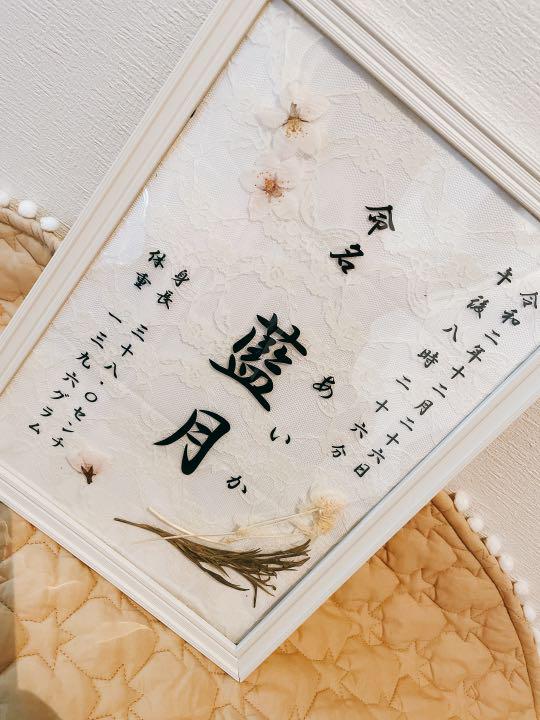 令和二年十二月二十六日
午後八時二十六分
命名
藍月
あいか
身長 三十八.〇センチ
体重 一三九六グラム